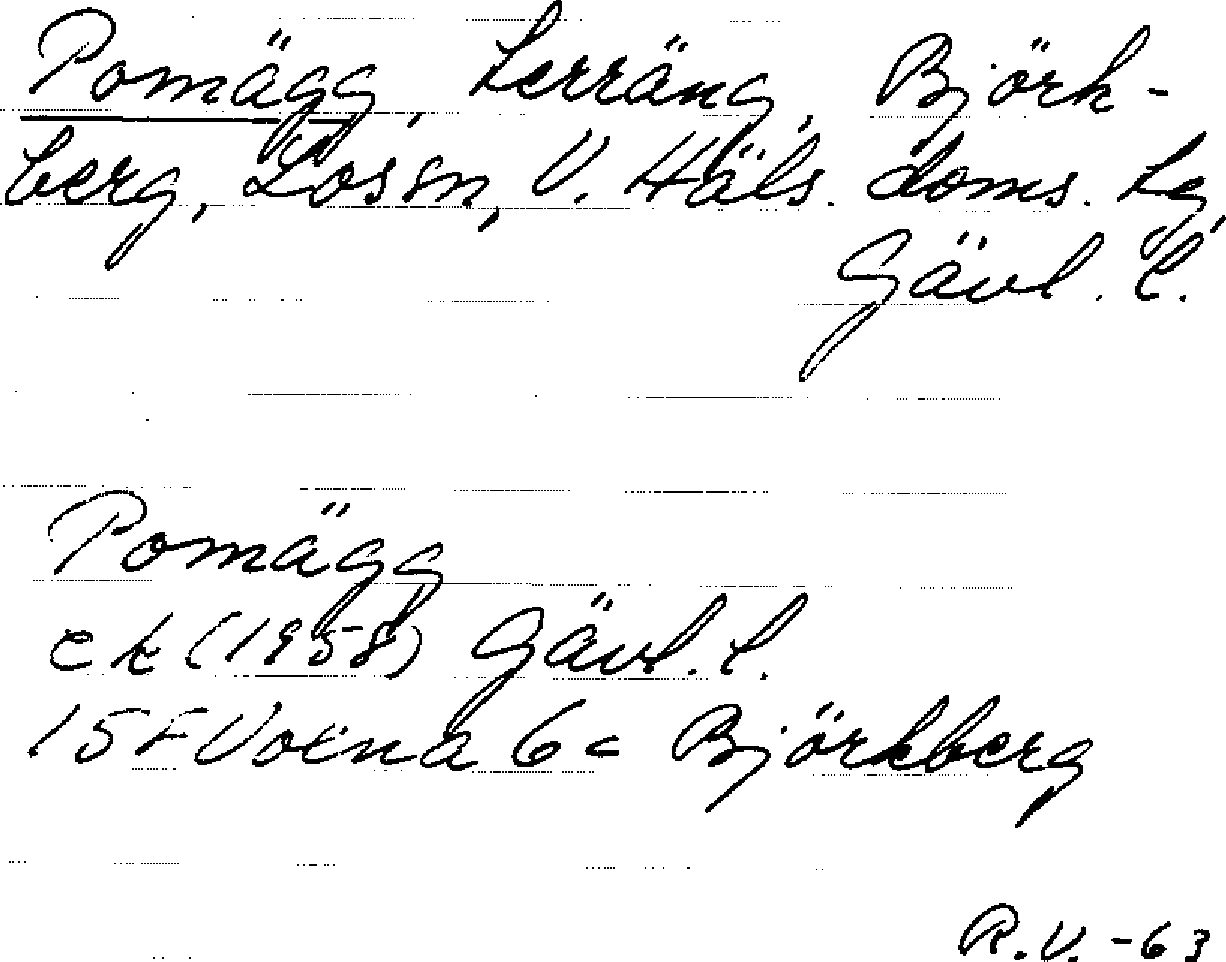 Pomägg, Lerräng, Björk-
berg, Los sn, V. Häls. doms. Lg,
Gävl. l.
Pomägg
ek (1958) Gävl. l.
15F Voxna 6c Björkberg
R.V. -63